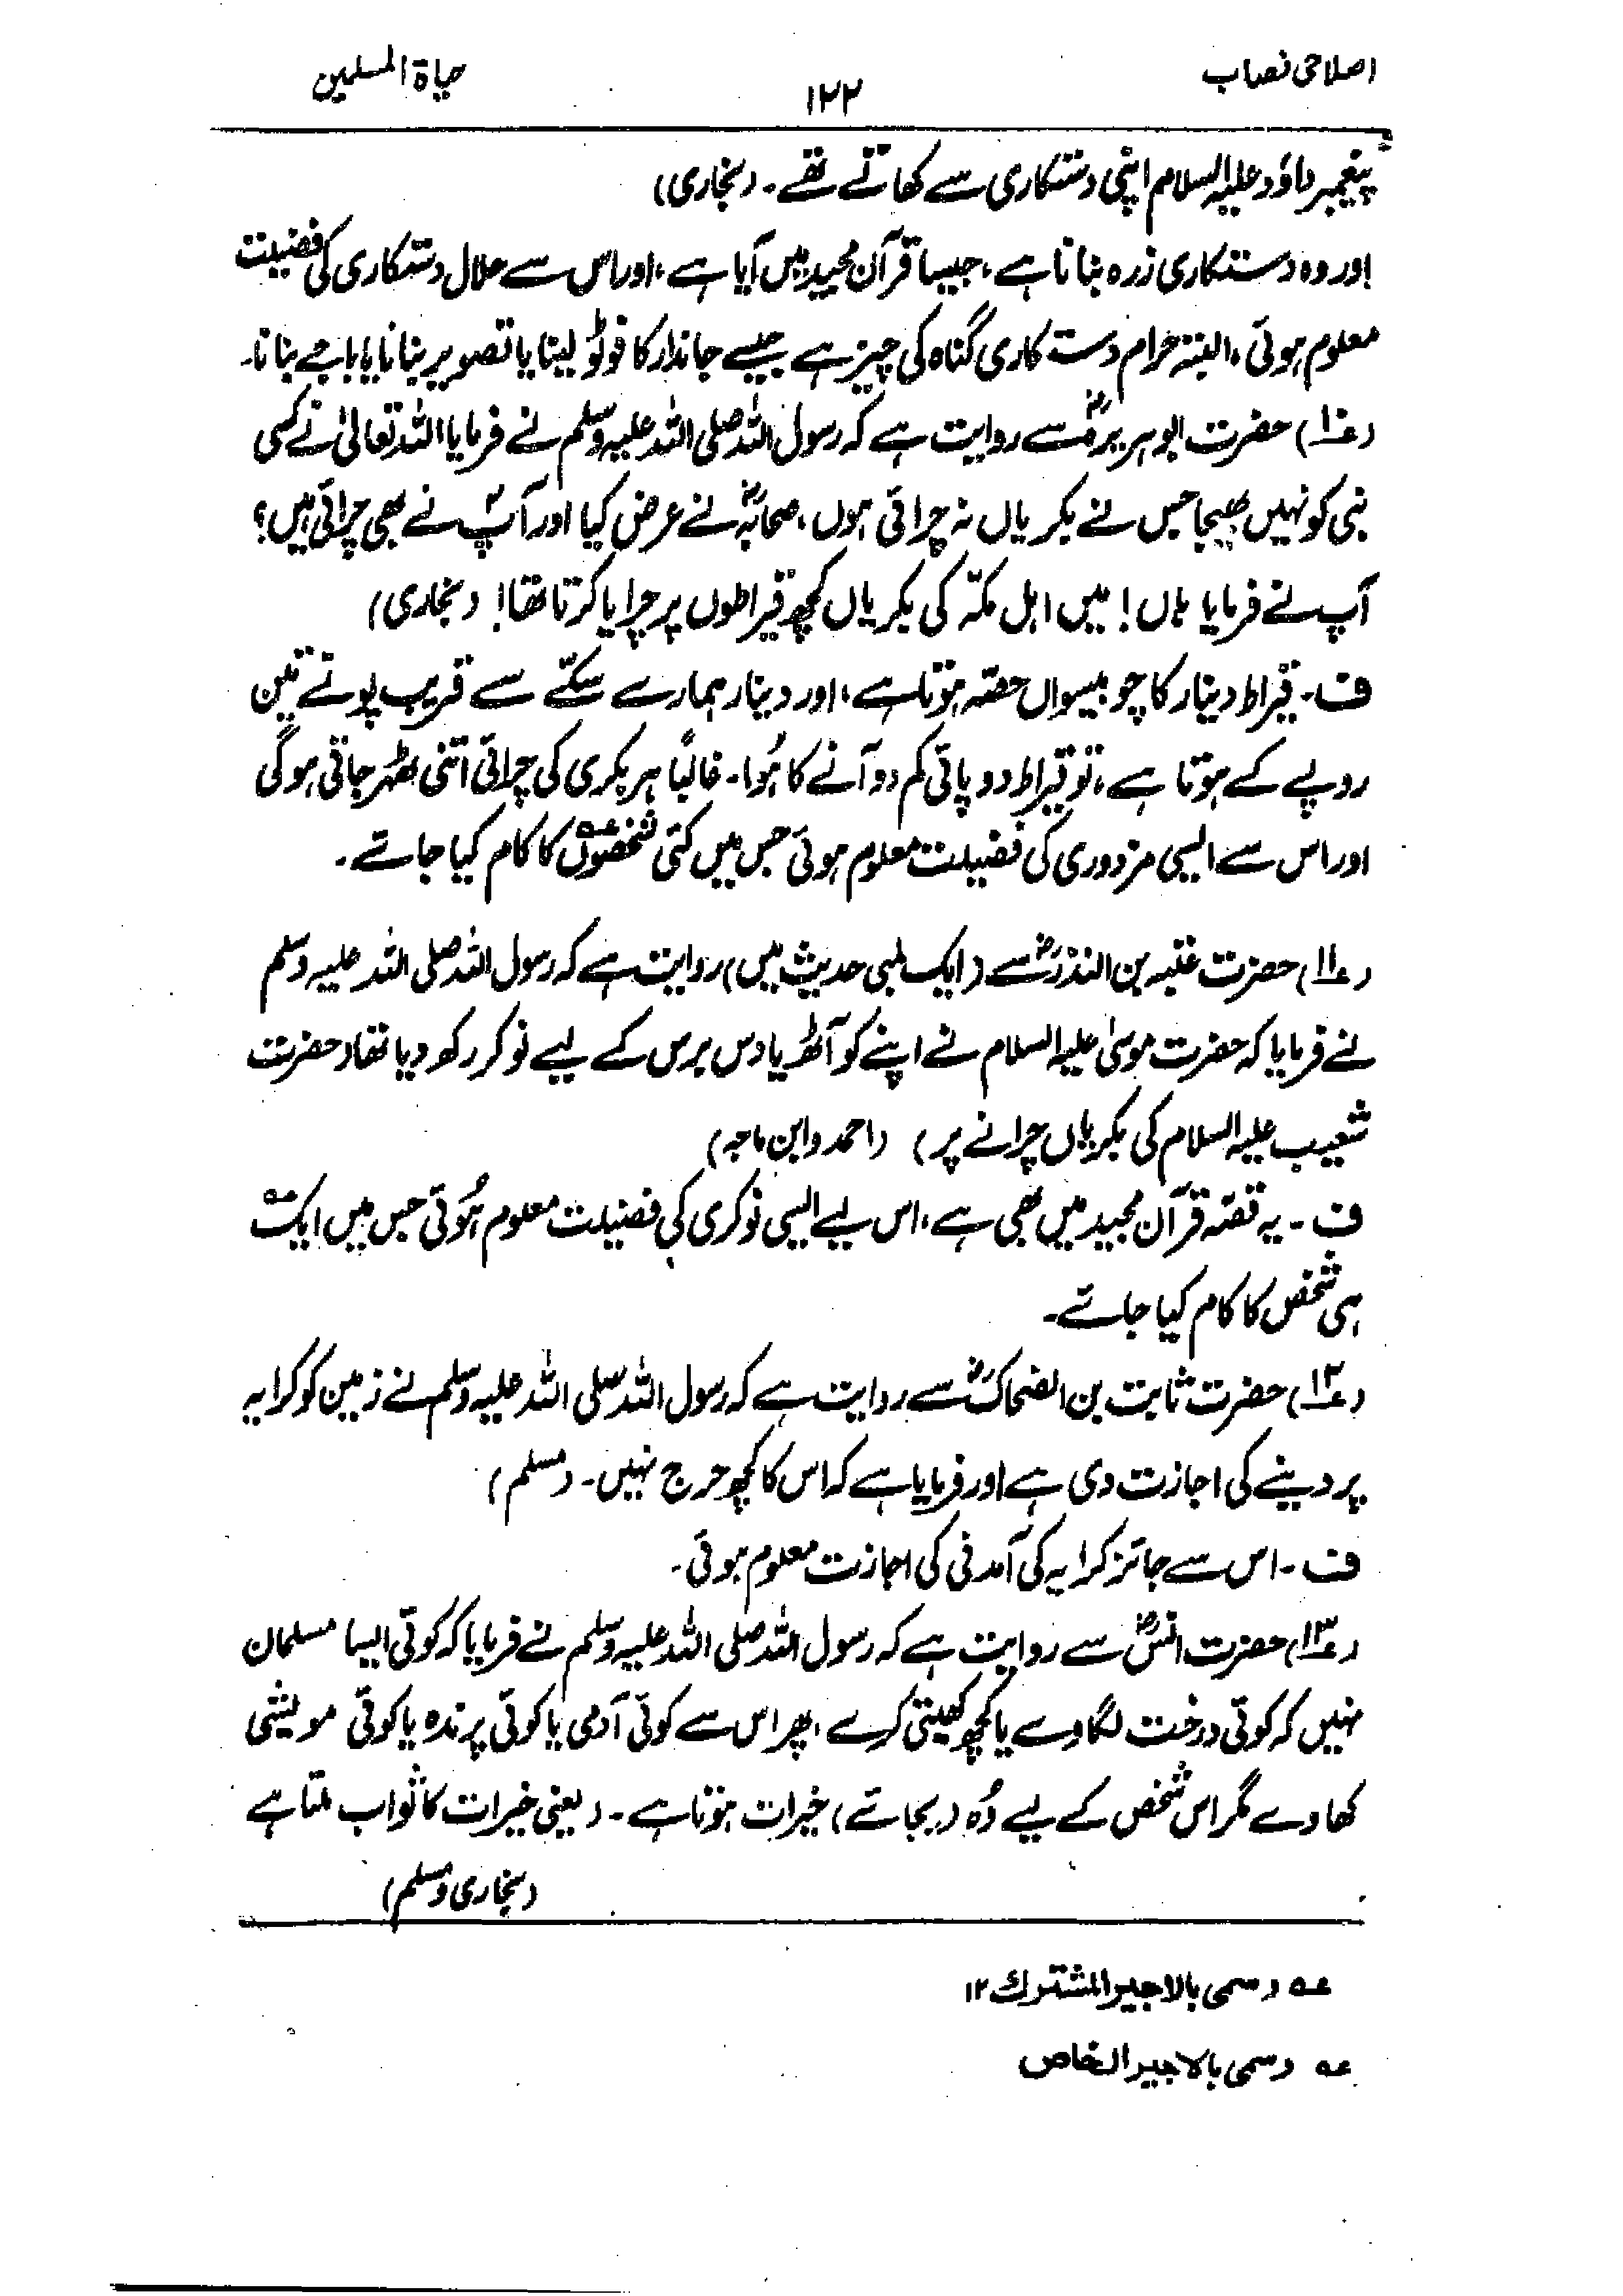 اصلاحی نصاب
۱۲۲
حیاۃ المسلمین
پیغمبر داؤد علیہ السلام اپنی دستکاری سے کھاتے تھے۔ (بخاری)
اور وہ دستکاری زرہ بنانا ہے، جیسا قرآن مجید میں آیا ہے، اور اس سے حلال دستکاری کی فضیلت
معلوم ہوئی، البتہ حرام دست کاری گناہ کی چیز ہے جیسے جاندار کا فوٹو لینا یا تصویر بنانا یا باجے بنانا۔
(۱۰) حضرت ابوہریرہؓ سے روایت ہے کہ رسول اللہ صلی اللہ علیہ وسلم نے فرمایا اللہ تعالیٰ نے کسی
نبی کو نہیں بھیجا جس نے بکریاں نہ چرائی ہوں، صحابہؓ نے عرض کیا اور آپؐ نے بھی چرائی ہیں؟
آپ نے فرمایا ہاں! میں اہل مکّہ کی بکریاں کچھ قیراطوں پر چرایا کرتا تھا! (بخاری)
ف۔ قیراط دینار کا چوبیسواں حصّہ ہوتا ہے، اور دینار ہمارے سکّے سے قریب پونے تین
روپے کے ہوتا ہے، تو قیراط دو پائی کم دو آنے کا ہُوا۔ غالباً ہر بکری کی چرائی اتنی ٹھہر جاتی ہوگی
اور اس سے ایسی مزدوری کی فضیلت معلوم ہوئی جس میں کئی شخصوںعہ کا کام کیا جائے۔
(۱۱) حضرت عتبہ بن الندرؓ سے (ایک لمبی حدیث میں) روایت ہے کہ رسول اللہ صلی اللہ علیہ وسلم
نے فرمایا کہ حضرت موسیٰ علیہ السلام نے اپنے کو آٹھ یا دس برس کے لیے نوکر رکھ دیا تھا (حضرت
شعیب علیہ السلام کی بکریاں چرانے پر) (احمد و ابن ماجہ)
ف۔ یہ قصّہ قرآن مجید میں بھی ہے، اس لیے ایسی نوکری کی فضیلت معلوم ہُوئی جس میں ایکعہ
ہی شخص کا کام کیا جائے۔
(۱۲) حضرت ثابت بن الضحاکؓ سے روایت ہے کہ رسول اللہ صلی اللہ علیہ وسلم نے زمین کو کرایہ
پر دینے کی اجازت دی ہے اور فرمایا ہے کہ اس کا کچھ حرج نہیں۔ (مسلم)
ف۔ اس سے جائز کرایہ کی آمدنی کی اجازت معلوم ہوئی۔
(۱۳) حضرت انسؓ سے روایت ہے کہ رسول اللہ صلی اللہ علیہ وسلم نے فرمایا کہ کوئی ایسا مسلمان
نہیں کہ کوئی درخت لگاوے یا کچھ کھیتی کرے، پھر اس سے کوئی آدمی یا کوئی پرندہ یا کوئی مویشی
کھاوے مگر اس شخص کے لیے وُہ (بجائے) خیرات ہوتا ہے۔ (یعنی خیرات کا ثواب ملتا ہے
(بخاری و مسلم)
عہ وسمی بالاجیر المشترک ۱۲
عہ وسمی بالاجیر الخاص